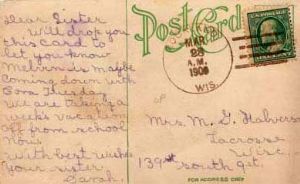 Dear Sister
Will drop you
this card to
let you know
is maybe
coming down with
Cora Thursday
we are taking a
week's vacation
off from school
now
with best wishes
your sister
Sarah.
Post Card
MAR
23
A.M.
WIS.
Mrs. M. G. Halverson
Lacrosse
Wis.
139 South 9 st.
FOR ADDRESS ONLY